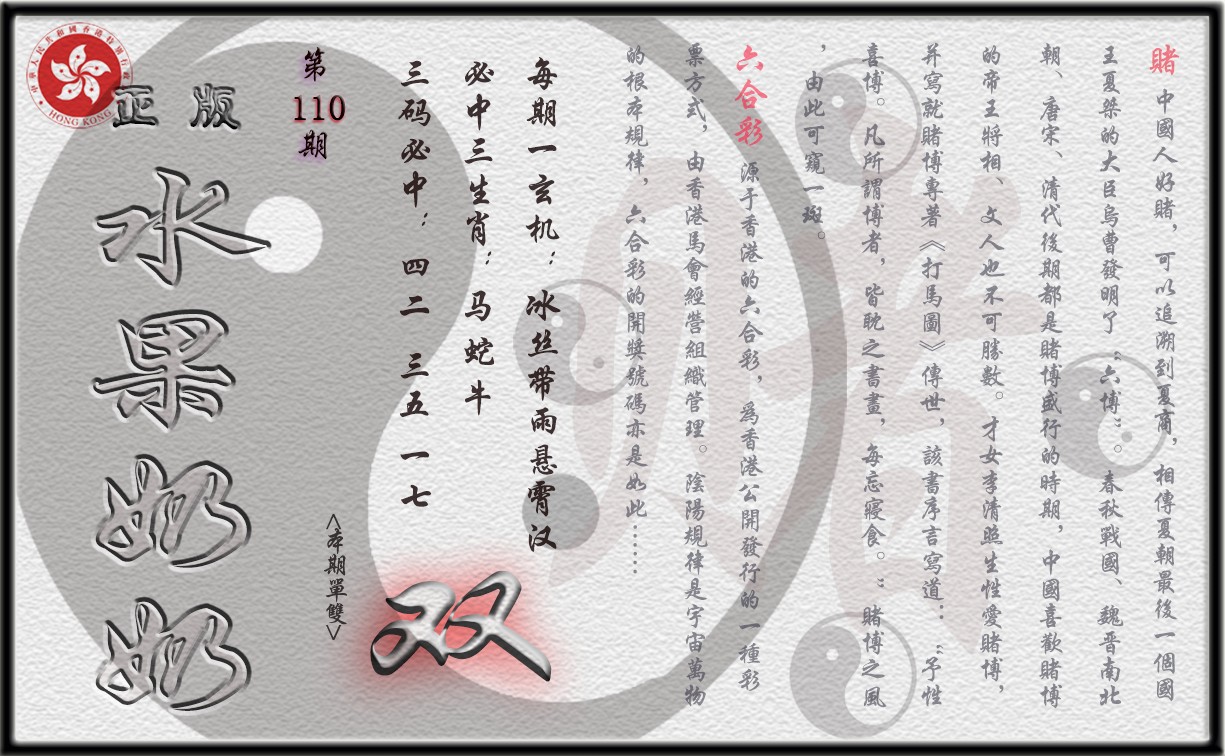 賭 中國人好賭，可以追溯到夏商，相傳夏朝最後一個國
王夏桀的大臣烏曹發明了“六博”。春秋戰國、魏晋南北
朝、唐宋、清代後期都是賭博盛行的時期，中國喜歡賭博
的帝王將相、文人也不可勝數。才女李清照生性愛賭博，
并寫就賭博專著《打馬圖》傳世，該書序言寫道：“予性
喜博。凡所謂博者，皆耽之書畫，每忘寢食。”賭博之風
，由此可窺一斑。
六合彩 源于香港的六合彩，爲香港公開發行的一種彩
票方式，由香港馬會經營組織管理。陰陽規律是宇宙萬物
的根本規律，六合彩的開獎號碼亦是如此……
每期一玄机：冰丝带雨悬霄汉
必中三生肖：马蛇牛
三码必中：四二 三五 一七
双
<本期單雙>
第
110
期
正版
水果奶奶
中華人民共和國香港特別行政區
HONG KONG